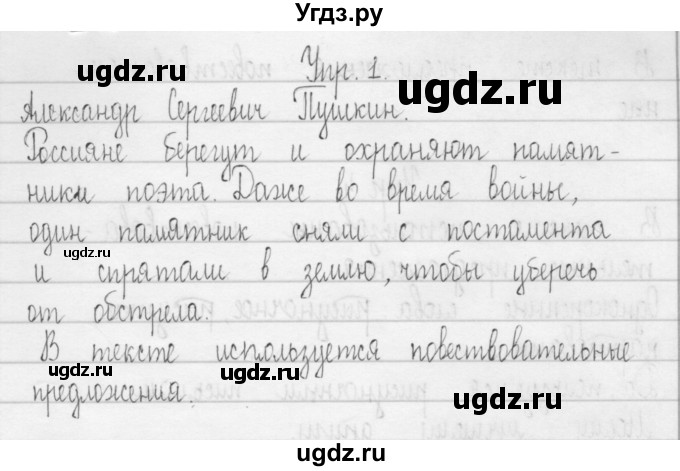 Угдз.ру
Упр. 1
Александр Сергеевич Пушкин.
Россияне берегут и охраняют памят-
ники поэта. Даже во время войны,
один памятник сняли с постамента
и спрятали в землю, чтобы уберечь
от обстрела.
В тексте используется повествовательные
предложения.
ugdz.ru
ugdz.ru
ugdz.ru
ugdz.ru
ugdz.ru
ugdz.ru
ugdz.ru
ugdz.ru